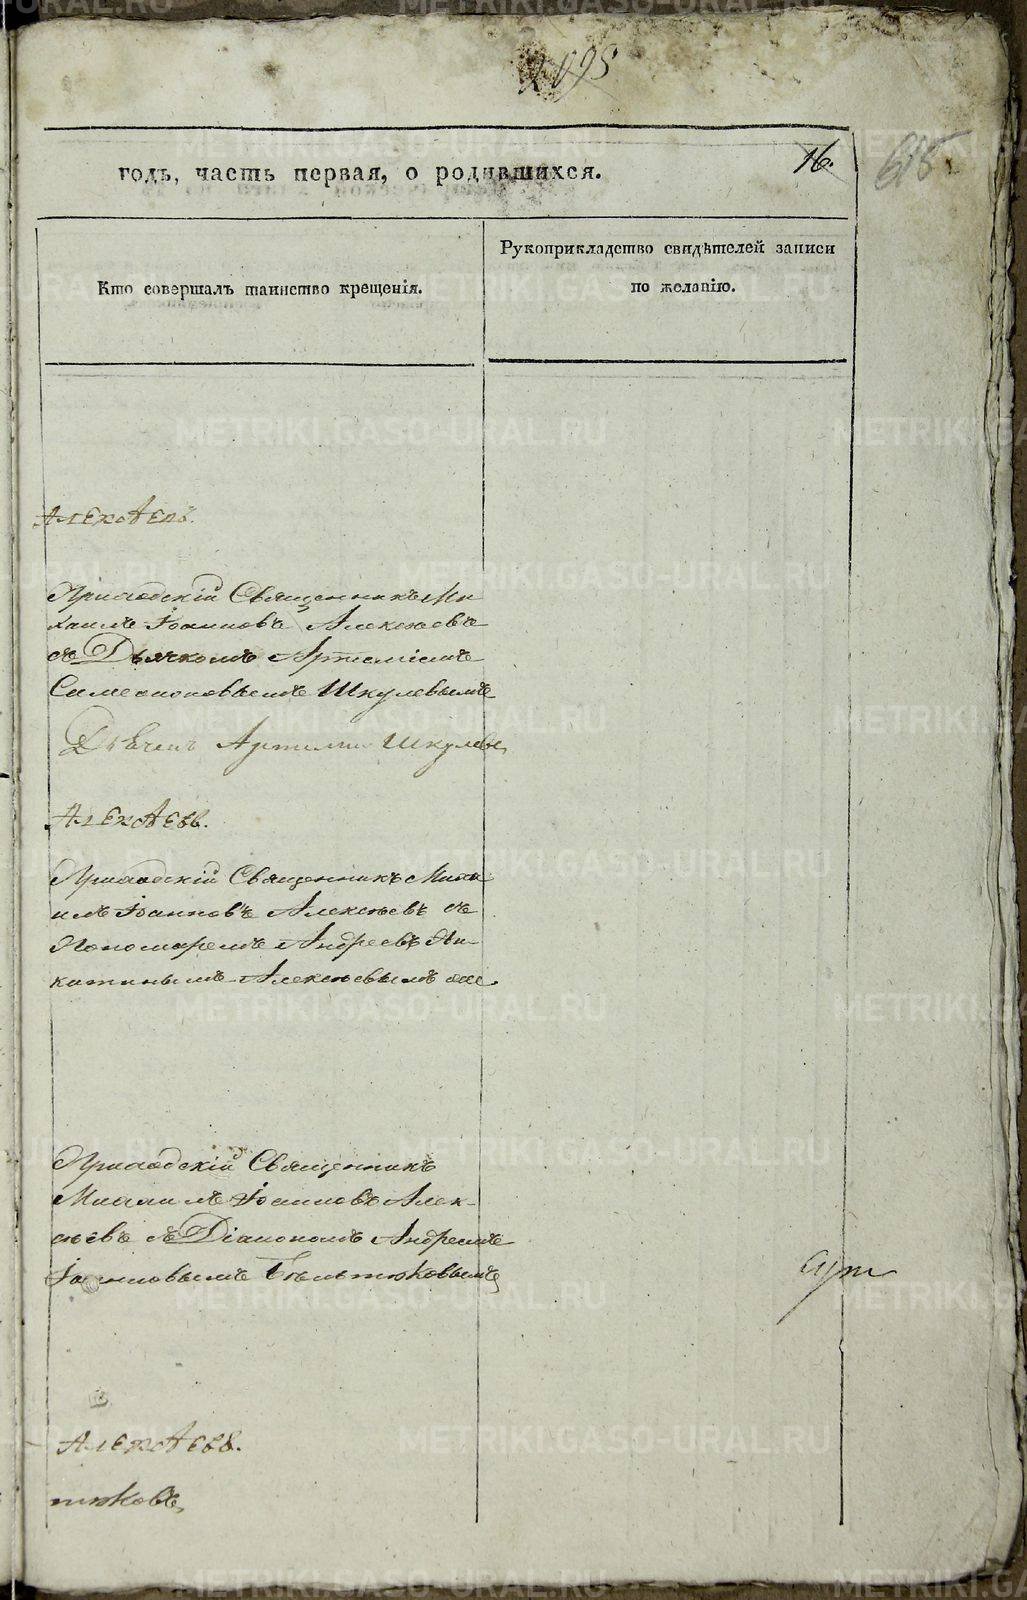 2095
годъ, часть первая, о родившихся.
16.
615
Кто совершалъ таинство крещенія.
Рукоприкладство свидѣтелей записи
по желанію.
Алексѣевъ.
Приходскій Священникъ Ми
хаилъ Іоанновъ Алексѣевъ
съ Дьячкомъ Артеміемъ
Симеоновымъ Шкулевымъ
Дьячекъ Артемий Шкулевъ
Алексѣевъ.
Приходскій Священникъ Миха
илъ Іоанновъ Алексѣевъ съ
Пономаремъ Андреевъ Ни-
китинымъ Алексѣевымъ же.
Приходскій Священникъ
Михаилъ Іоанновъ Алек-
сѣевъ съ Діакономъ Андреемъ
Іоанновымъ Бѣльтюковымъ
Алексѣевъ.
тюковъ,
METRIKI.GASO-URAL.RU